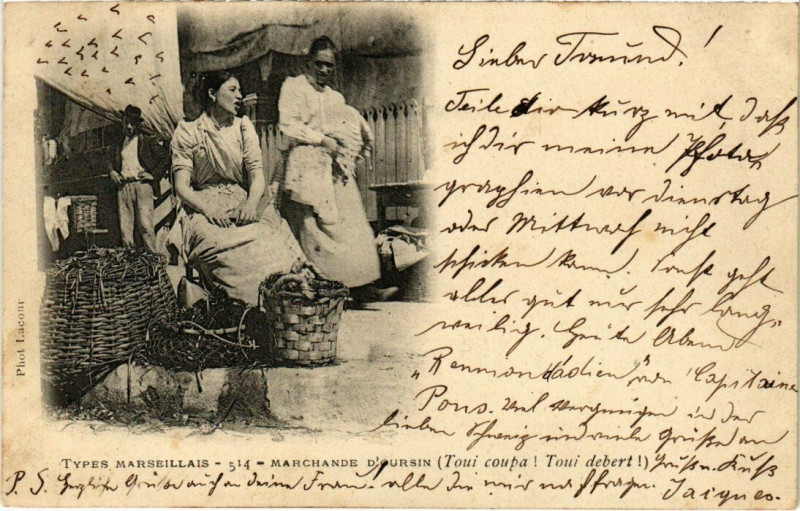 Lieber Freund!
Teile dir kurz mit, daß
ich dir meine Photo-
graphien vor Dienstag
oder Mittwoch nicht
schicken kann. Sonst geht
alles gut nur sehr lang-
weilig. Heute Abend
"Capitaine
Pons. viel vergnügen in der
lieben Schweiz und viele Grüße an
Gruß u. Kuß
Jacques.
P. S. Herzliche Grüße auch an deine Frau! alle die mir nachfragen.
Phot Lacour
TYPES MARSEILLAIS - 514 - MARCHANDE D'OURSIN (Toui coupa ! Toui debert !)